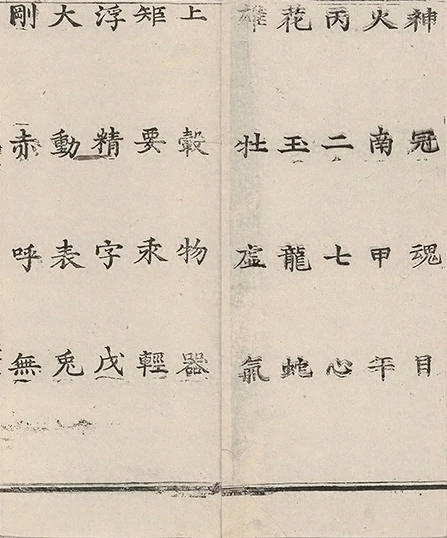 神冠魂目
火南甲年
丙二七心
花玉龍蛇
雄牡虛氣
上轂物器
矩要汞輕
浮精字戊
大動表兎
剛赤呼無